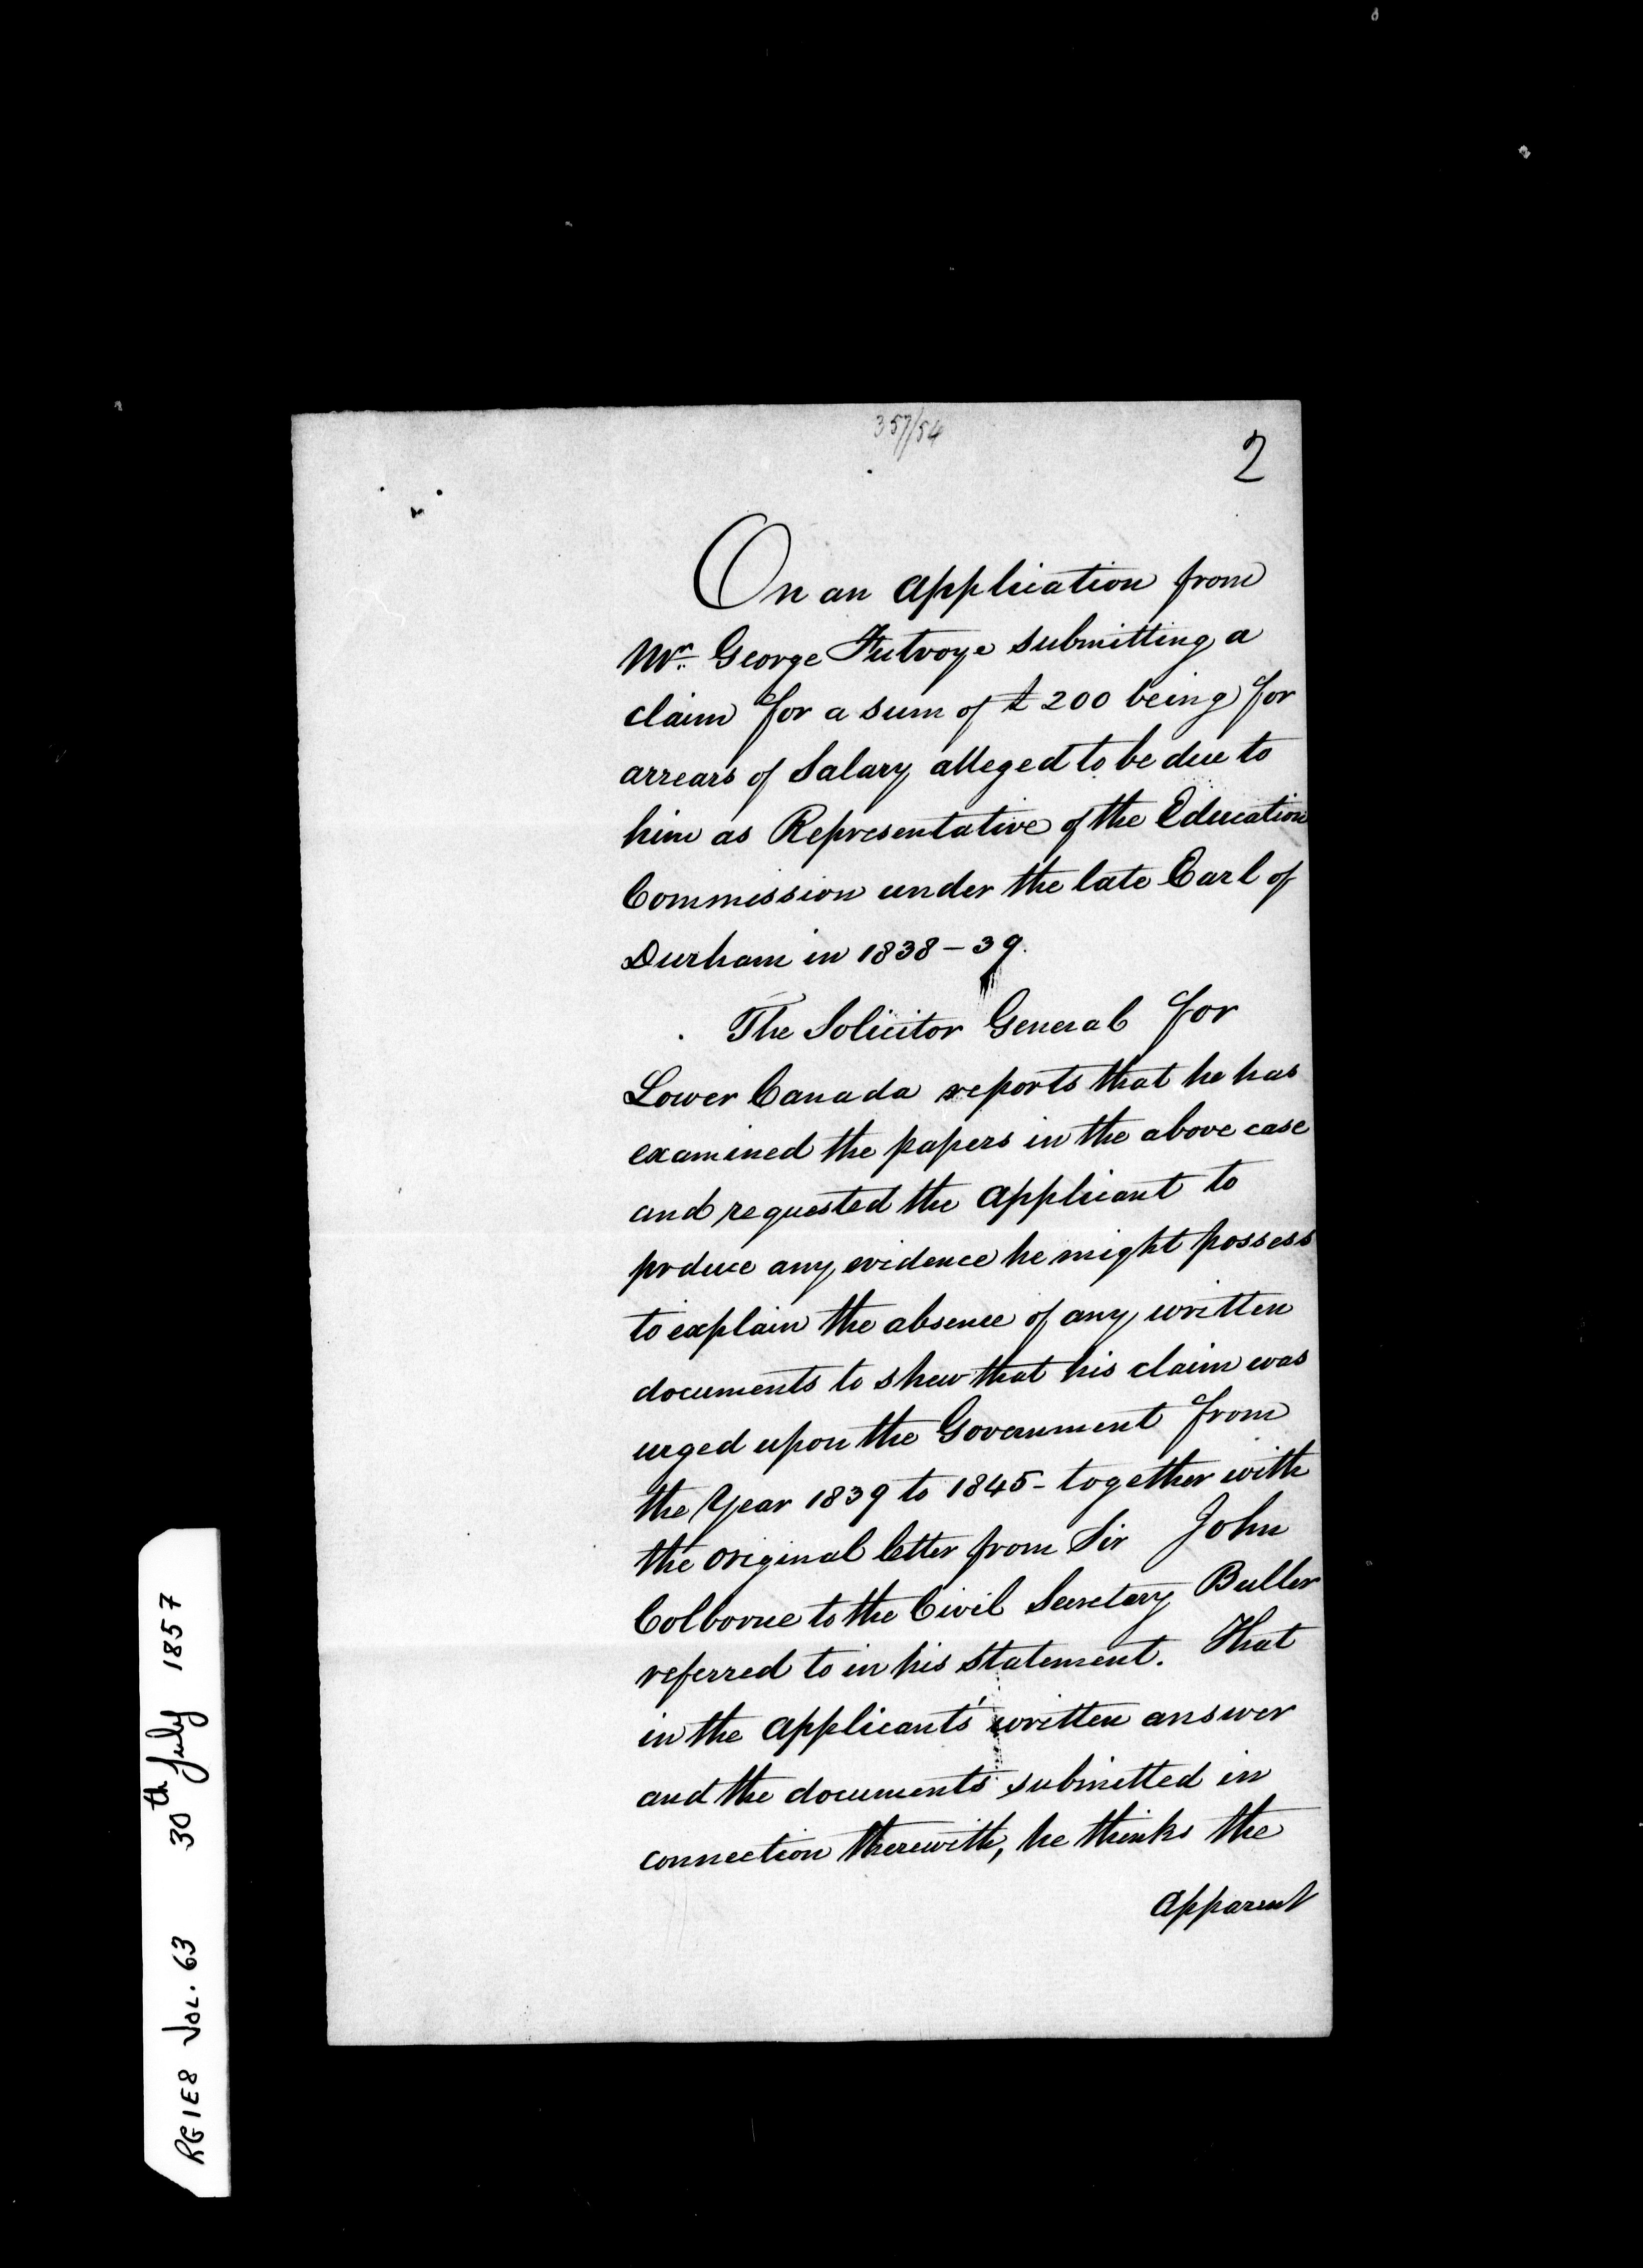 357/54
2
On an Application from
Mr. George Futvoye submitting a
claim for a sum of £200 being for
arrears of Salary alleged to be due to
him as Representative of the Education
Commission under the late Earl of
Durham in 1838-39.
The Solicitor General for
Lower Canada reports that he has
examined the papers in the above case
and requested the Applicant to
prduce any evidence he might possess
to explain the absence of any written
documents to shew that his claim was
urged upon the Government from
the Year 1839 to 1845- together with
the Original letter from Sir John
Colborne to the Civil Secretary Buller
referred to in his Statement. That
in the Applicants' written answer
and the documents submitted in
connection therewith, he thinks the
Apparent
RG1E8 VOL. 63 30th July 1857